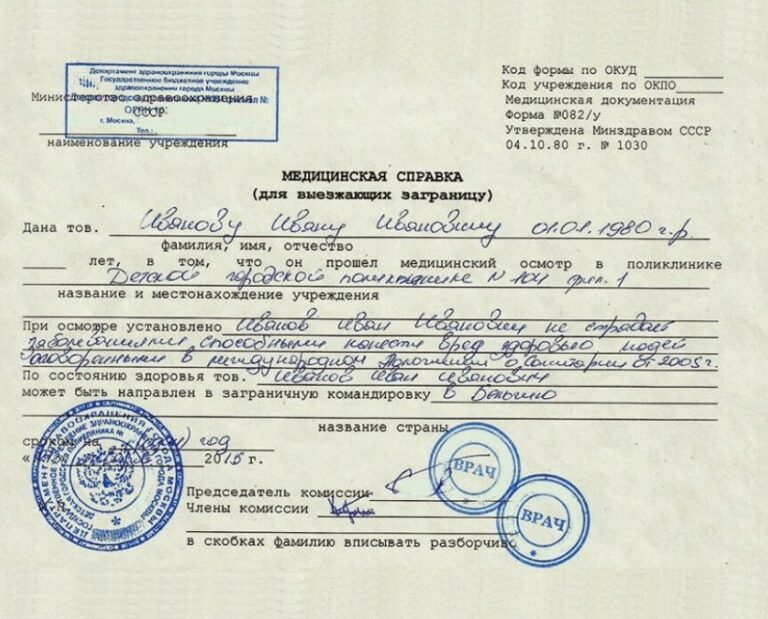 Департамент здравоохранения города Москвы
Государственное бюджетное учреждение
здравоохранения города Москвы
Министерство здравоохранения
СССР
г. Москва,
Тел.:
наименование учреждения
Код формы по ОКУД
Код учреждения по ОКПО
Медицинская документация
Форма №082/у
Утверждена Минздравом СССР
04.10.80 г. № 1030
МЕДИЦИНСКАЯ СПРАВКА
(для выезжающих заграницу)
Дана тов. Иванову Ивану Ивановичу 01.01.1980 г.р.
фамилия, имя, отчество
лет, в том, что он прошел медицинский осмотр в поликлинике
Детской городской поликлинике N 104 фил. 1
название и местонахождение учреждения
При осмотре установлено Иванов Иван Иванович не страдает
заболеваниями способными нанести вред здоровью людей
оговоренными в международном Положении о Санитарии от 2005 г.
По состоянию здоровья тов. Иванов Иван Иванович
может быть направлен в заграничную командировку в Бельгию
название страны
сроком на 1 год
2015 г.
Председатель комиссии
Члены комиссии
в скобках фамилию вписывать разборчиво
ВРАЧ
ВРАЧ